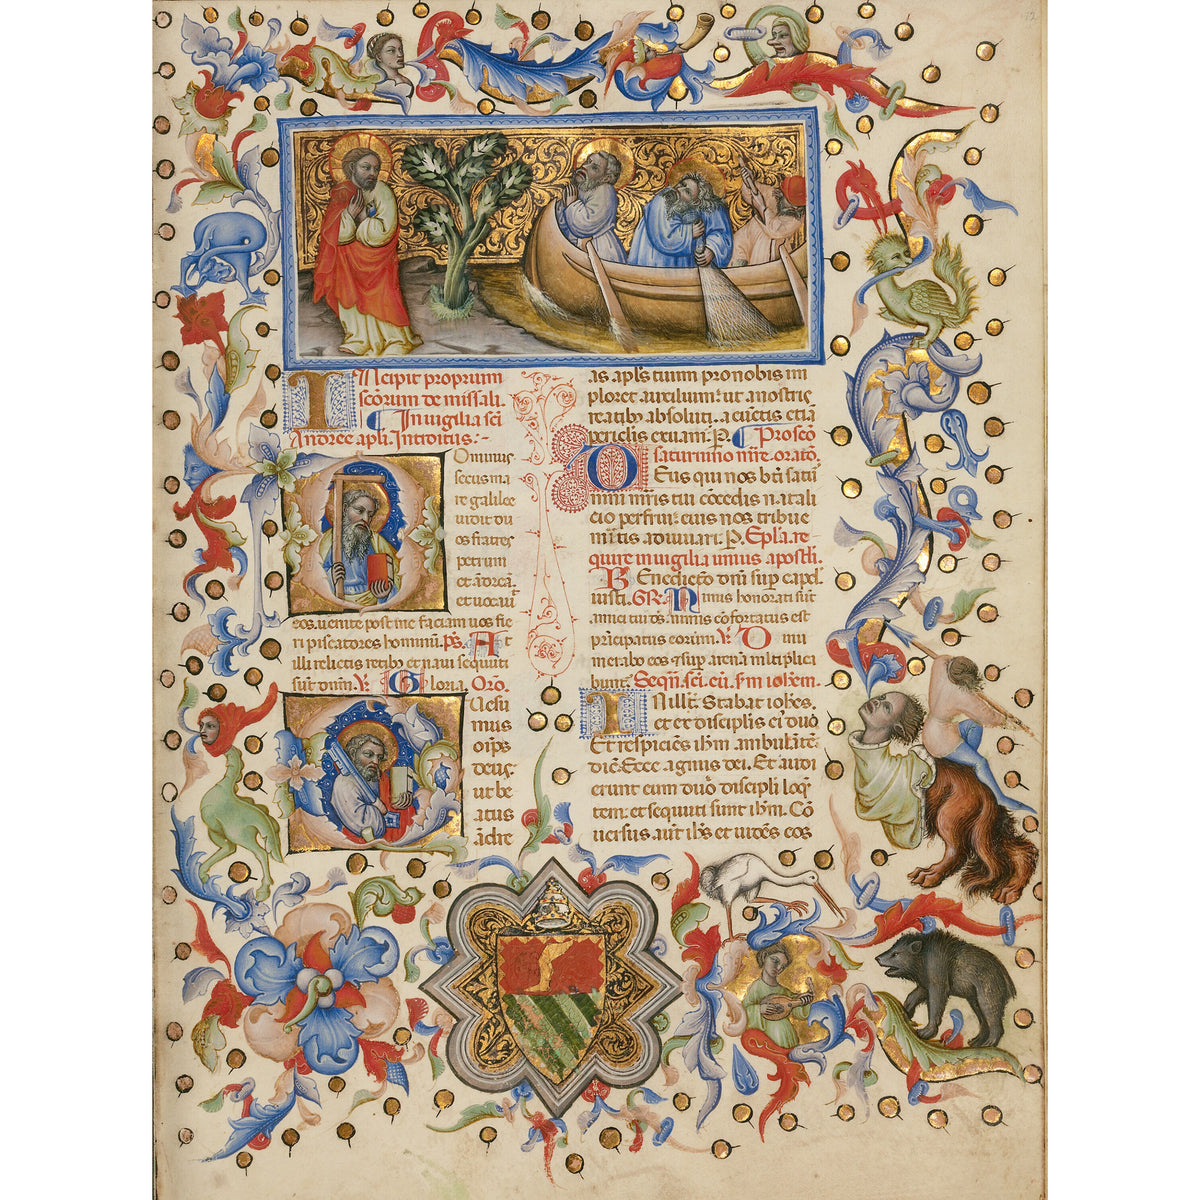 Incipit proprium
scorum de missali.
In uigilia sci
Andree apli. Introitus:-
Ominus
secus ma
re galilee
uidit du
os fratres
petrum
et andreā.
et uocauit
eos. uenite post me faciam uos fie
ri piscatores hominū. ps. At
illi relictis retib; et naui sequuti
sūt dnm. V. Gloria. Orō.
Uesu
mus
oīps
deus:
ut be
atus
andre
as apls tuum pro nobis im
ploret auxilium: ut a nostris
reatib; absoluti. a cunctis etiā
periclis exuam. P. Pro scō
saturnino mīre. oratō.
Deus qui nos bti satur
nini mīris tui cōcedis natali
cio perfrui: eius nos tribue
mitis adiuuari. P. Epla re
quire in uigilia unius apostli.
Benedictō dni sup capd
iusti. Gr. Nimis honorati sūt
amici tui ds. nimis confortatus est
principatus eorum. V. Dinu
merabo eos et sup arena multiplica
buntur. Seqn. sci. eū. sm iohem.
In illr. Stabat iohes.
et ex discipulis ei duo
Et respiciēs ihm ambulātē.
dic. Ecce agnus dei. Et audi
erunt eum duo discipli loq̄n
tem. et sequuti sunt ihm. Cō
uersus aūt ihs et uidēs eos